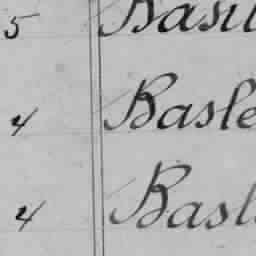 5 Basil
4 Basle
4 Basl